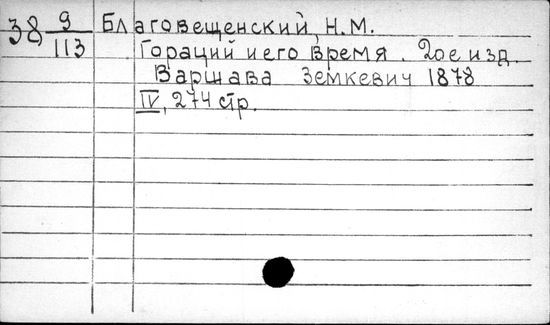 38 9/113 Благовещенский, Н.М.
Гораций и его время. 2ое изд.
Варшава Земкевич 1878
IV, 274 стр.